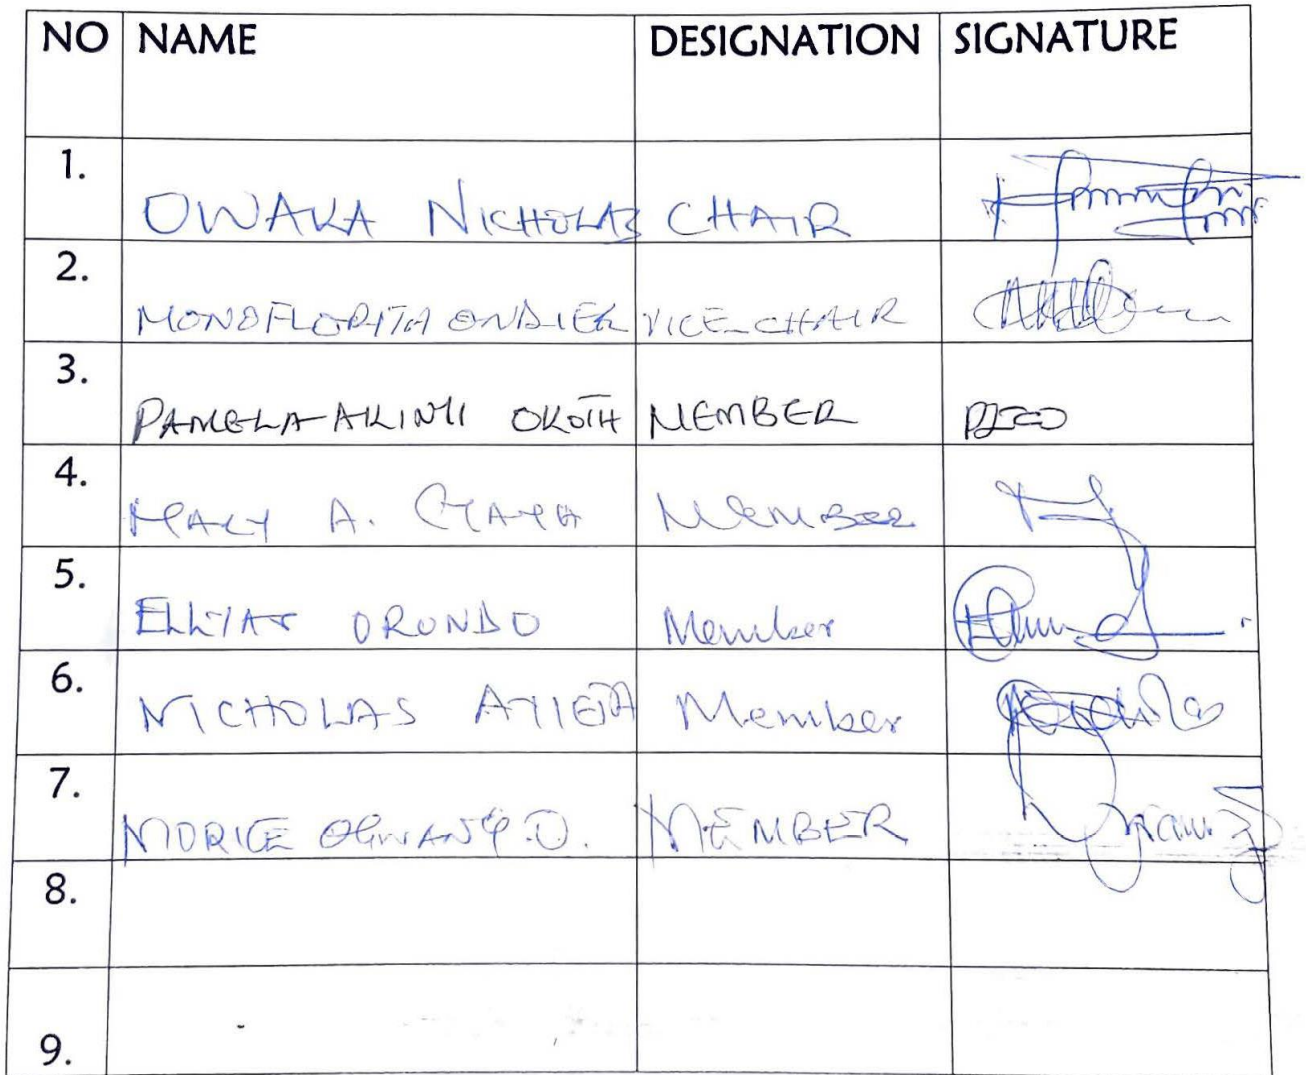 NO NAME DESIGNATION SIGNATURE
1. OWAKA NICHOLAS CHAIR
2. MONOFLORITA ONDIEK VICE-CHAIR
3. PAMELA AKINYI OKOTH MEMBER
4. A. MEMBER
5. ORONDO Member
6. NICHOLAS Member
7. MORICE MEMBER
8.
9.